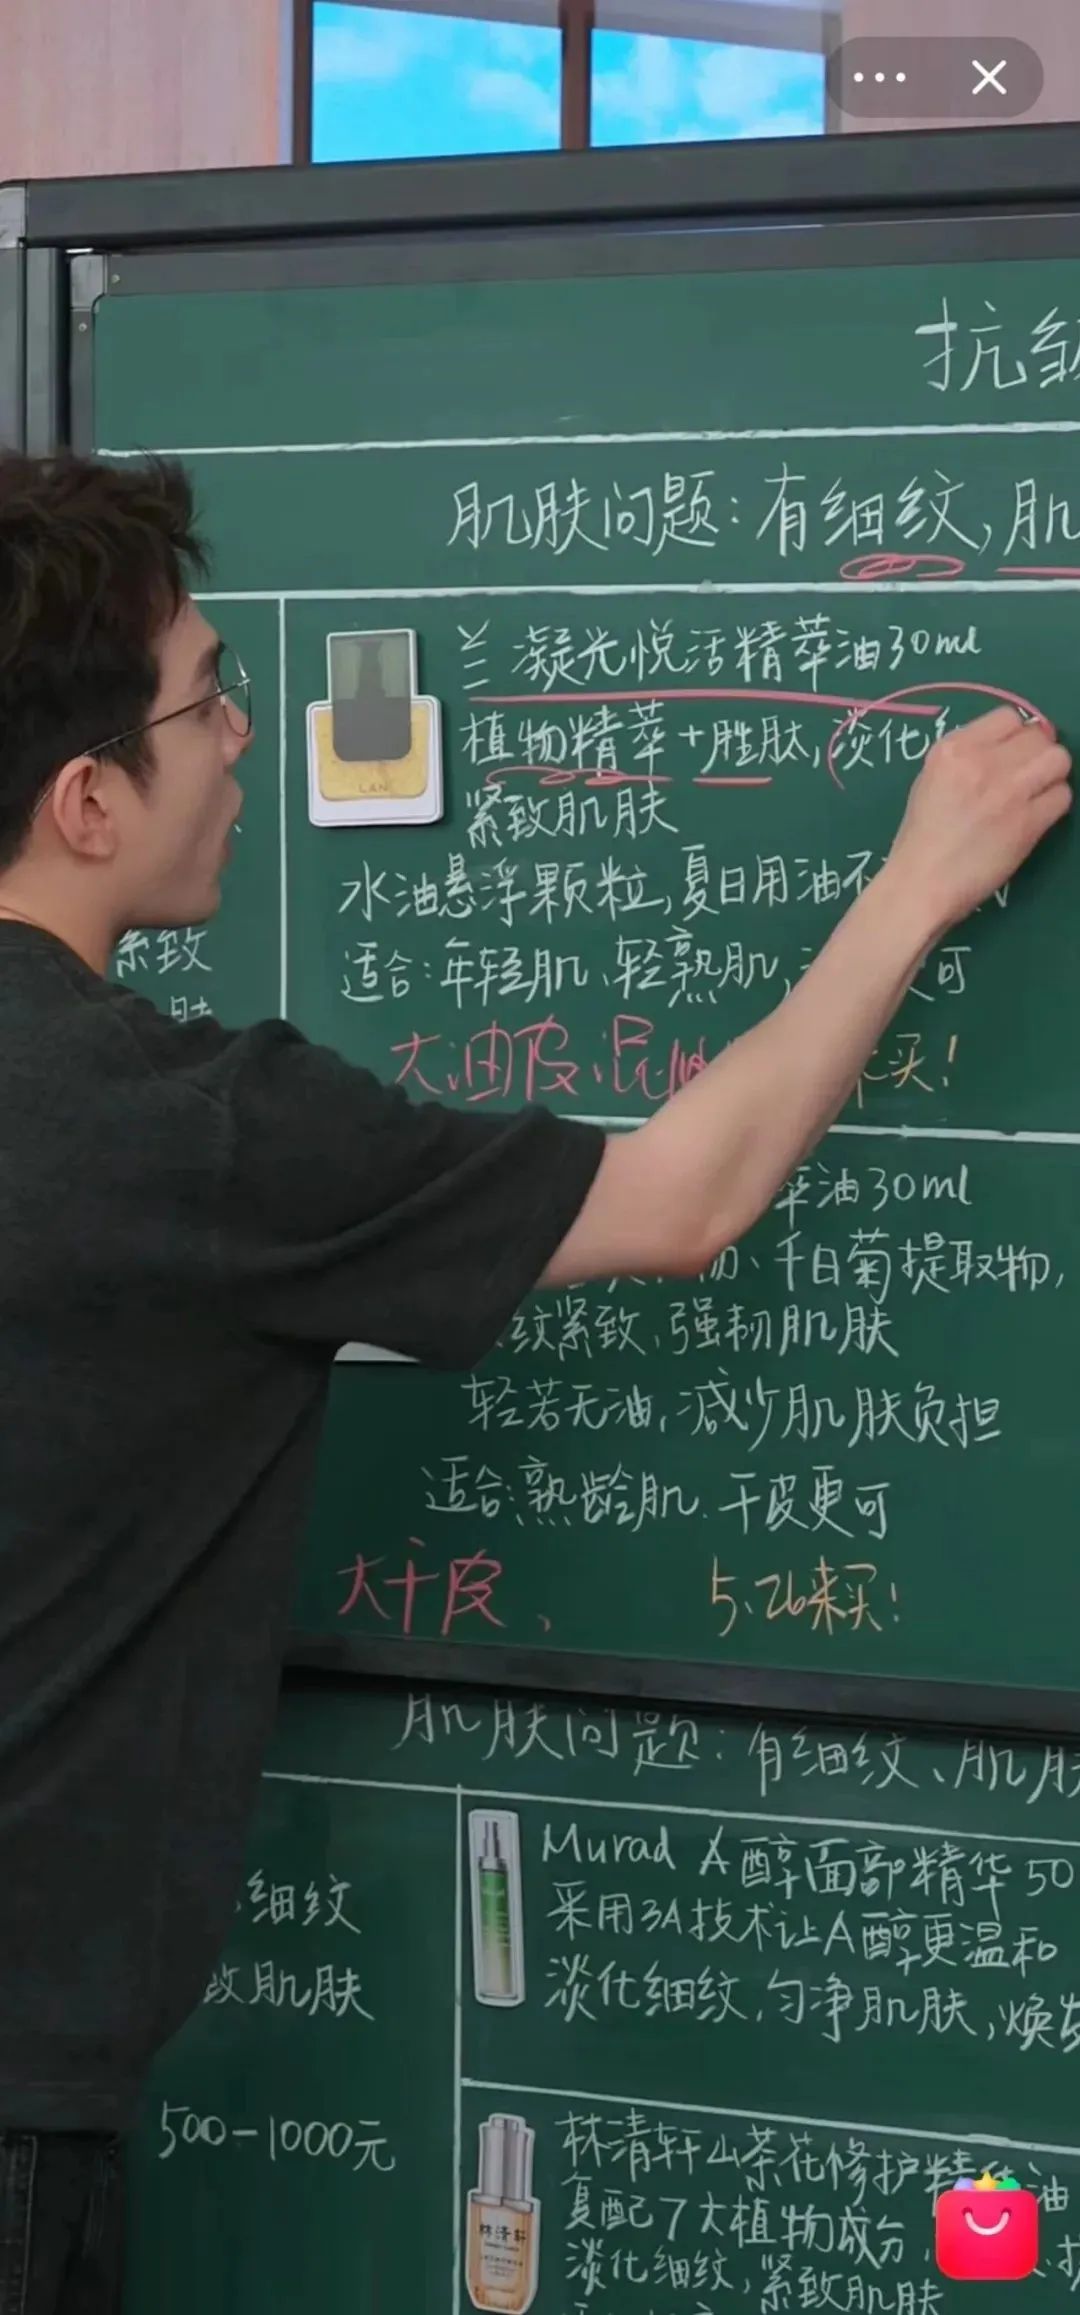 抗皱
肌肤问题：有细纹，肌
兰 凝光悦活精萃油30ml
植物精萃+胜肽，淡化细
LAN
紧致肌肤
水油悬浮颗粒，夏日用油不
适合：年轻肌、轻熟肌，
更可
紧致
肤
大油皮、混油
来买！
萃油30ml
物、千白菊提取物，
纹紧致，强韧肌肤
轻若无油，减少肌肤负担
适合：熟龄肌．干皮更可
大干皮、 5.26来买！
肌肤问题：有细纹、肌肤
细纹
致肌肤
500-1000元
Murad A醇面部精华 50
采用3A技术让A醇更温和
淡化细纹，匀净肌肤，焕
林清轩山茶花修护精华油
复配7大植物成分，
淡化细纹，紧致肌肤
林清轩